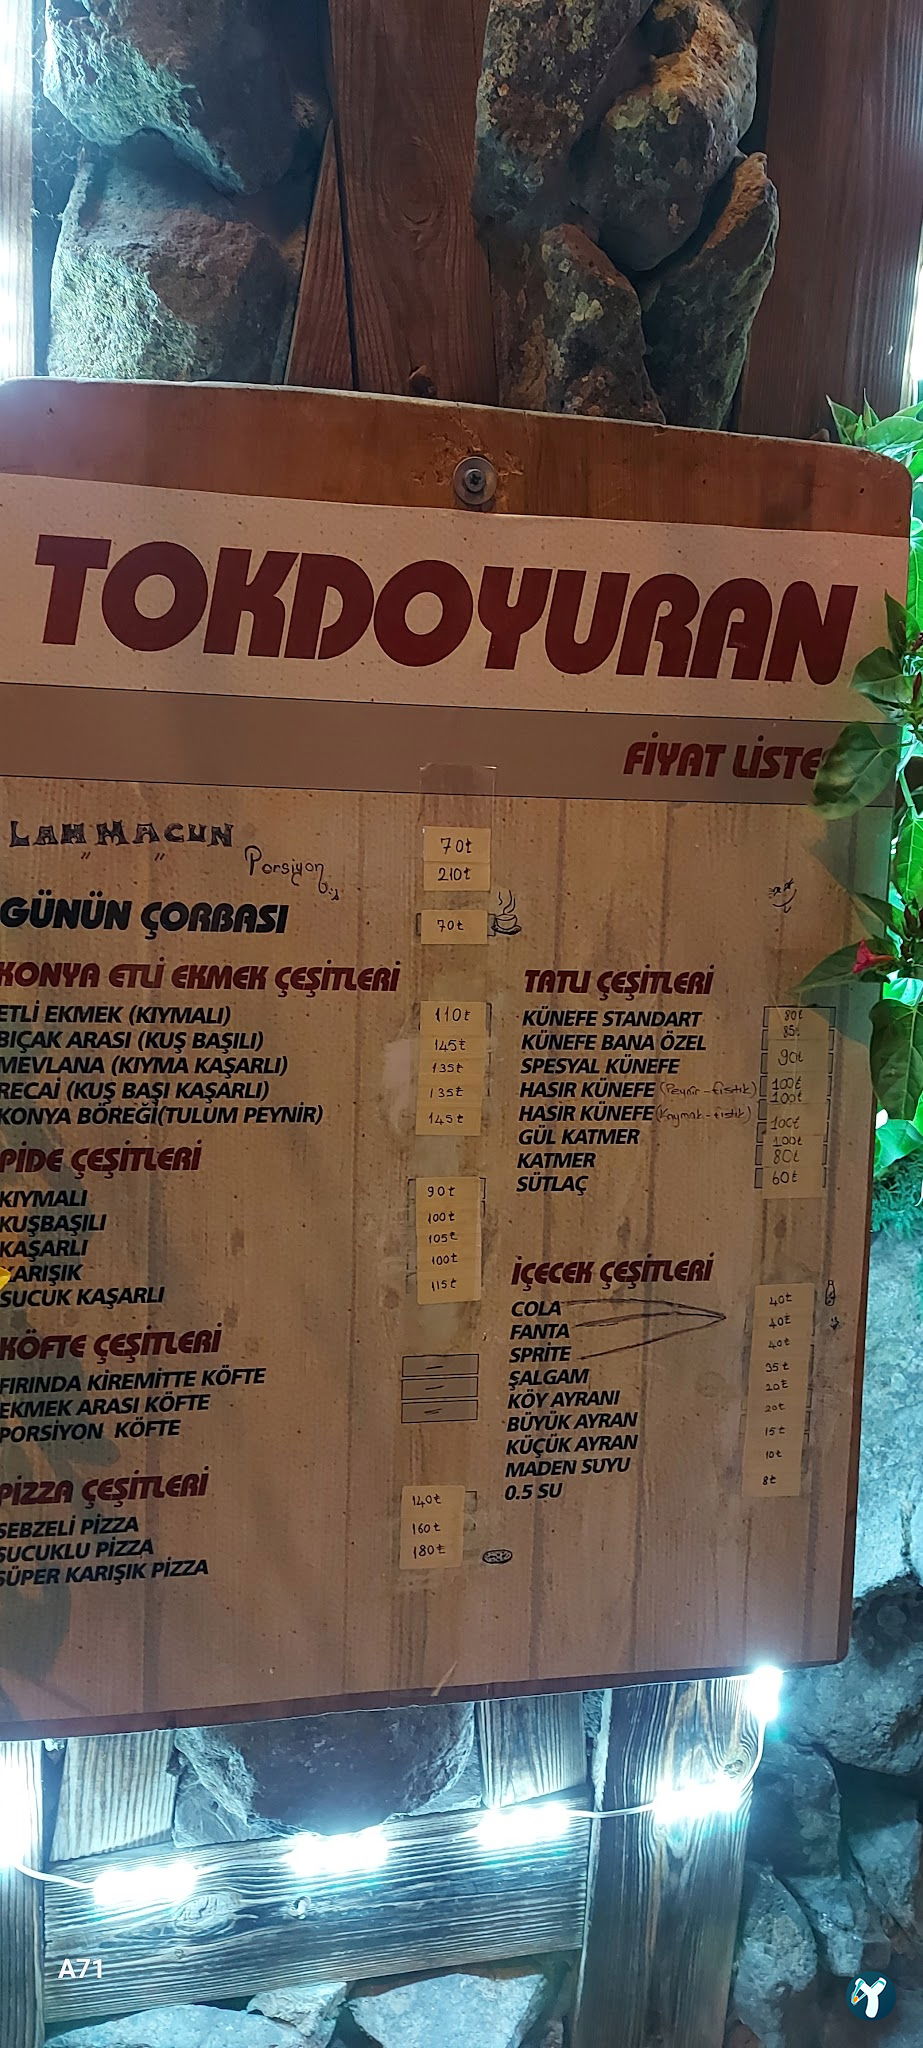 TOKDOYURAN
FİYAT LİSTE
LAHMACUN 70₺
" " Porsiyon 210₺
GÜNÜN ÇORBASI 70₺
KONYA ETLİ EKMEK ÇEŞİTLERİ
ETLİ EKMEK (KIYMALI) 110₺
BIÇAK ARASI (KUŞ BAŞILI) 145₺
MEVLANA (KIYMA KAŞARLI) 135₺
RECAİ (KUŞ BAŞI KAŞARLI) 135₺
KONYA BÖREĞİ(TULUM PEYNİR) 145₺
PİDE ÇEŞİTLERİ
KIYMALI 90₺
KUŞBAŞILI 100₺
KAŞARLI 105₺
KARIŞIK 100₺
SUCUK KAŞARLI 115₺
KÖFTE ÇEŞİTLERİ
FIRINDA KİREMİTTE KÖFTE —
EKMEK ARASI KÖFTE —
PORSİYON KÖFTE —
PİZZA ÇEŞİTLERİ
SEBZELİ PİZZA 140₺
SUCUKLU PİZZA 160₺
SÜPER KARIŞIK PİZZA 180₺
TATLI ÇEŞİTLERİ
KÜNEFE STANDART 80₺
KÜNEFE BANA ÖZEL 85₺
SPESYAL KÜNEFE 90₺
HASIR KÜNEFE (Peynir-fıstık) 100₺
HASIR KÜNEFE (Kaymak-fıstık) 100₺
GÜL KATMER 100₺
100₺
KATMER 80₺
SÜTLAÇ 60₺
İÇECEK ÇEŞİTLERİ
COLA 40₺
FANTA 40₺
SPRİTE 40₺
ŞALGAM 35₺
KÖY AYRANI 20₺
BÜYÜK AYRAN 20₺
KÜÇÜK AYRAN 15₺
MADEN SUYU 10₺
0.5 SU 8₺
A71